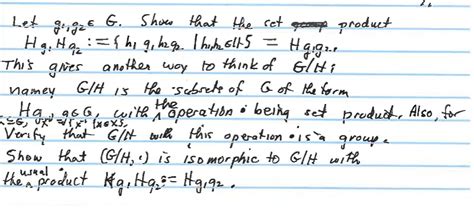 Let g₁, g₂ ∈ G. Show that the set product
Hg₁Hg₂ := {h₁ g₁ h₂ g₂ | h₁, h₂ ∈ H} = Hg₁g₂.
This gives another way to think of G/H;
namey G/H is the subsets of G of the form
Hg, g ∈ G, with the operation • being set product. Also, for
Verify that G/H with this operation • is a group.
Show that (G/H, •) is isomorphic to G/H with
the usual product Hg₁Hg₂ := Hg₁g₂.